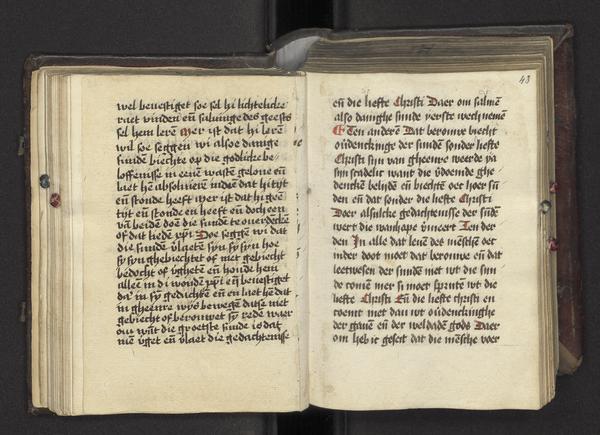 wel beuestiget soe sel hi lichtelicke
raet vinden eñ saluinge des geests
sel hem lerē Mer ist dat hi lerē
wil soe seggen wi alsoe danige
sunde biechte op die godlicke be-
loffenisse in eenē vastē geloue eñ
laet hē absoluierē indiē dat hi tijt
eñ stonde heeft Mer ist dat hi geē
tijt eñ stonde en heeft eñ doch een
vā beidē doen die sunde te ouerdēckē
of dat liedē Doe seggē wi dat
die sundē vlaetē syn sy syn hoe
sy syn ghebiechtet of niet gebiecht
bedocht of vghetē eñ houde hem
allee in di woude eñ beuestiget
in sy gedachte eñ en laet hē dat
in gheenre wys bewegē datse niet
gebiecht of berouwet sy rede waer
om wāt die groetste sunde is dat
niē vget eñ vlaet die gedachtenisse
43
eñ die liefte Christi Daer om salmē
also danighe sunde yerste wech nemē
Ten anderē Dat berouwe biecht
ouerdenckinge der sundē sonder liefte
Christi sijn van gheenre weerde ya
sijn scadelic want die ghe
denckē belidē eñ biechtē oec hoer sū
den eñ dat sonder die liefte Christi
Doer alsulcke gedachtenisse der sūdē
wert die wanhape Ten der
den In alle dat leuē des mēschē oec
inder doot moet dat berouwe eñ dat
leetwesen der sundē niet wt die sun
de comē mer si moet sprutē wt die
liefte Christi Eñ die liefte christi en
coemt niet dan wt ouerdenckinghe
der gauē eñ der weldadē gods Daer
om heb ic geseit dat die mēsche voer